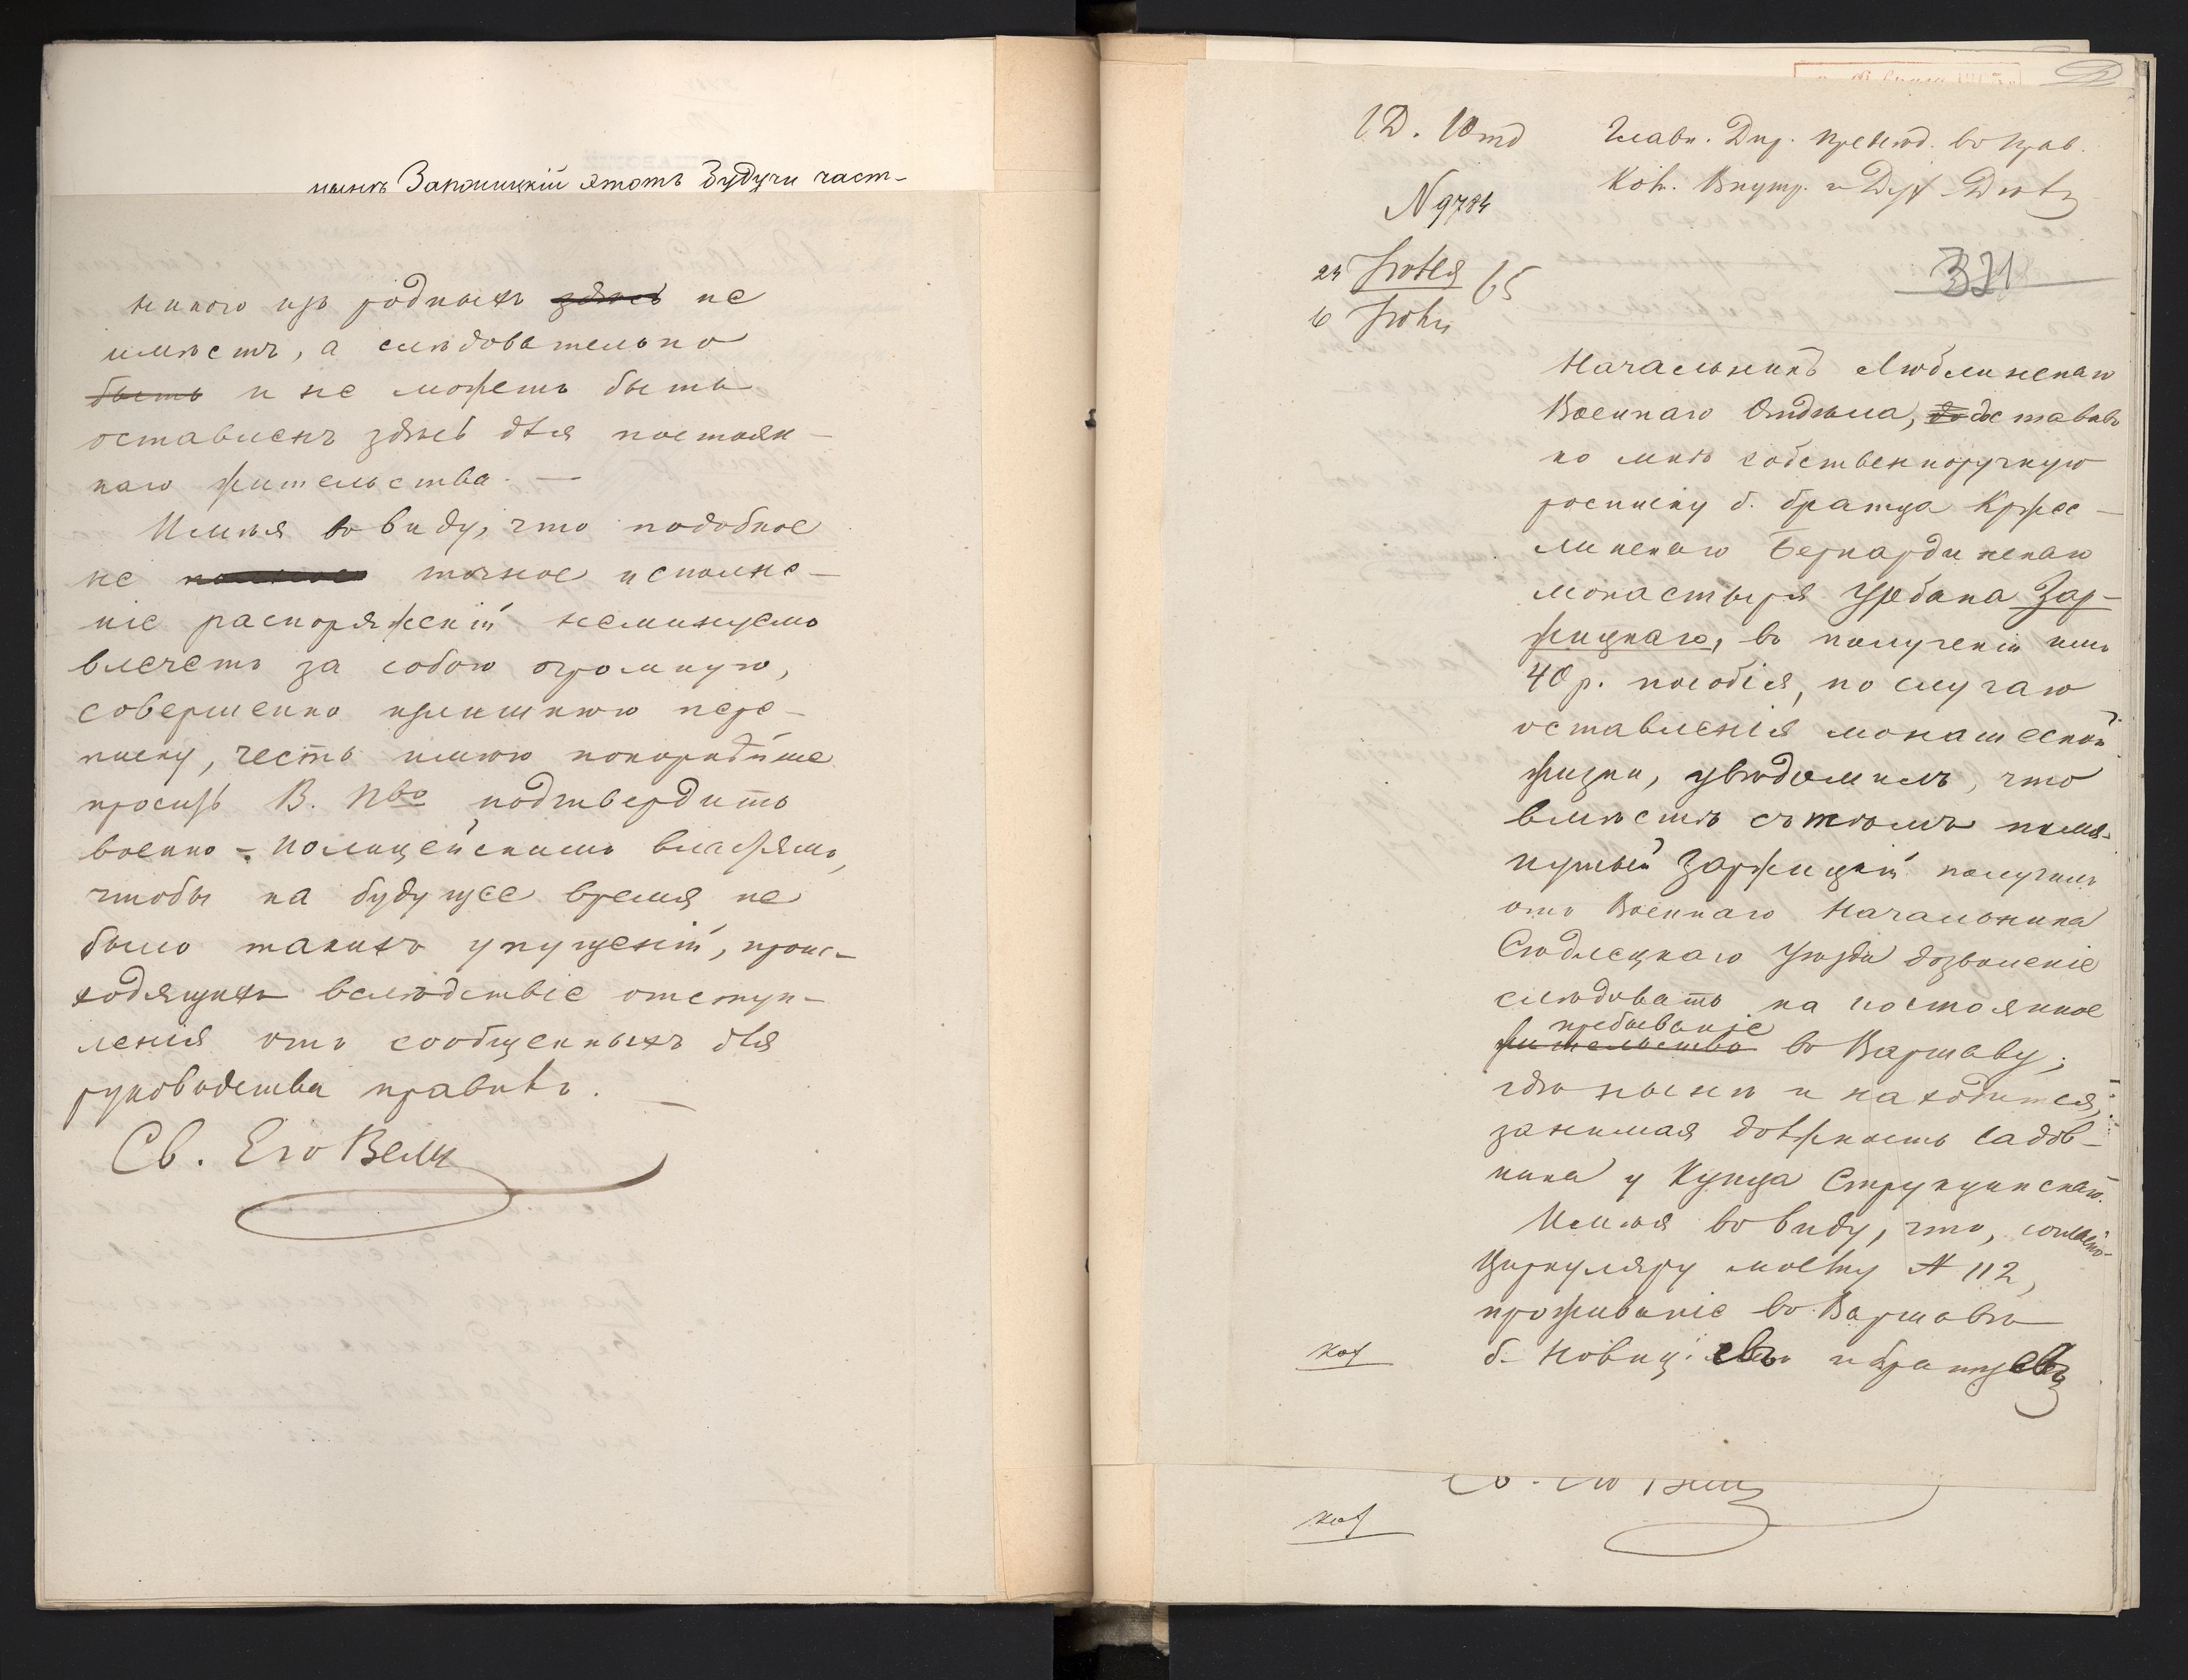 нынѣ Запольицкій этотъ будучи част-
никого изъ родныхъ здѣсь не
имѣетъ, а слѣдовательно
быть и не можетъ быть
оставленъ здѣсь для постоян-
наго жительства. —
Имѣя въ виду, что подобное
не точное исполне-
ніе распоряженій неминуемо
влечетъ за собою огромную,
совершенно излишнюю пере-
писку, честь имѣю покорнѣйше
просить В. Пво подтвердить
военно-полицейскимъ властямъ,
чтобы на будущее время не
было такихъ упущеній, проис-
ходящихъ вслѣдствіе отступ-
ленія отъ сообщенныхъ для
руководства правилъ. —
Св. Его Вели
1 Д. 1 Отд
Главн. Дир. Предсѣд. въ Прав.
Ком. Внутр. и Дух. Дѣлъ
N 9784
321
24 Іюня 65
6 Іюля
Начальникъ Люблинскаго
Военнаго Отдѣла, доставивъ
ко мнѣ собственноручную
росписку б. братца Кржес-
линскаго Бернардинскаго
монастыря Урбана Зар-
жицкаго, въ полученіи имъ
40 р. пособія, по случаю
оставленія монашеской
жизни, увѣдомилъ, что
вмѣстѣ съ тѣмъ помя-
нутый Заржицкій получилъ
отъ Военнаго Начальника
Сѣдлецкаго Уѣзда дозволеніе
слѣдовать на постоянное
пребываніе
жительство въ Варшаву,
гдѣ нынѣ и находится,
занимая должность садов-
ника у Купца Струпчинскаго.
Имѣя въ виду, что, согласно
Циркуляру моему N 112,
проживаніе въ Варшавѣ
б. Новиціевъ и братцевъ